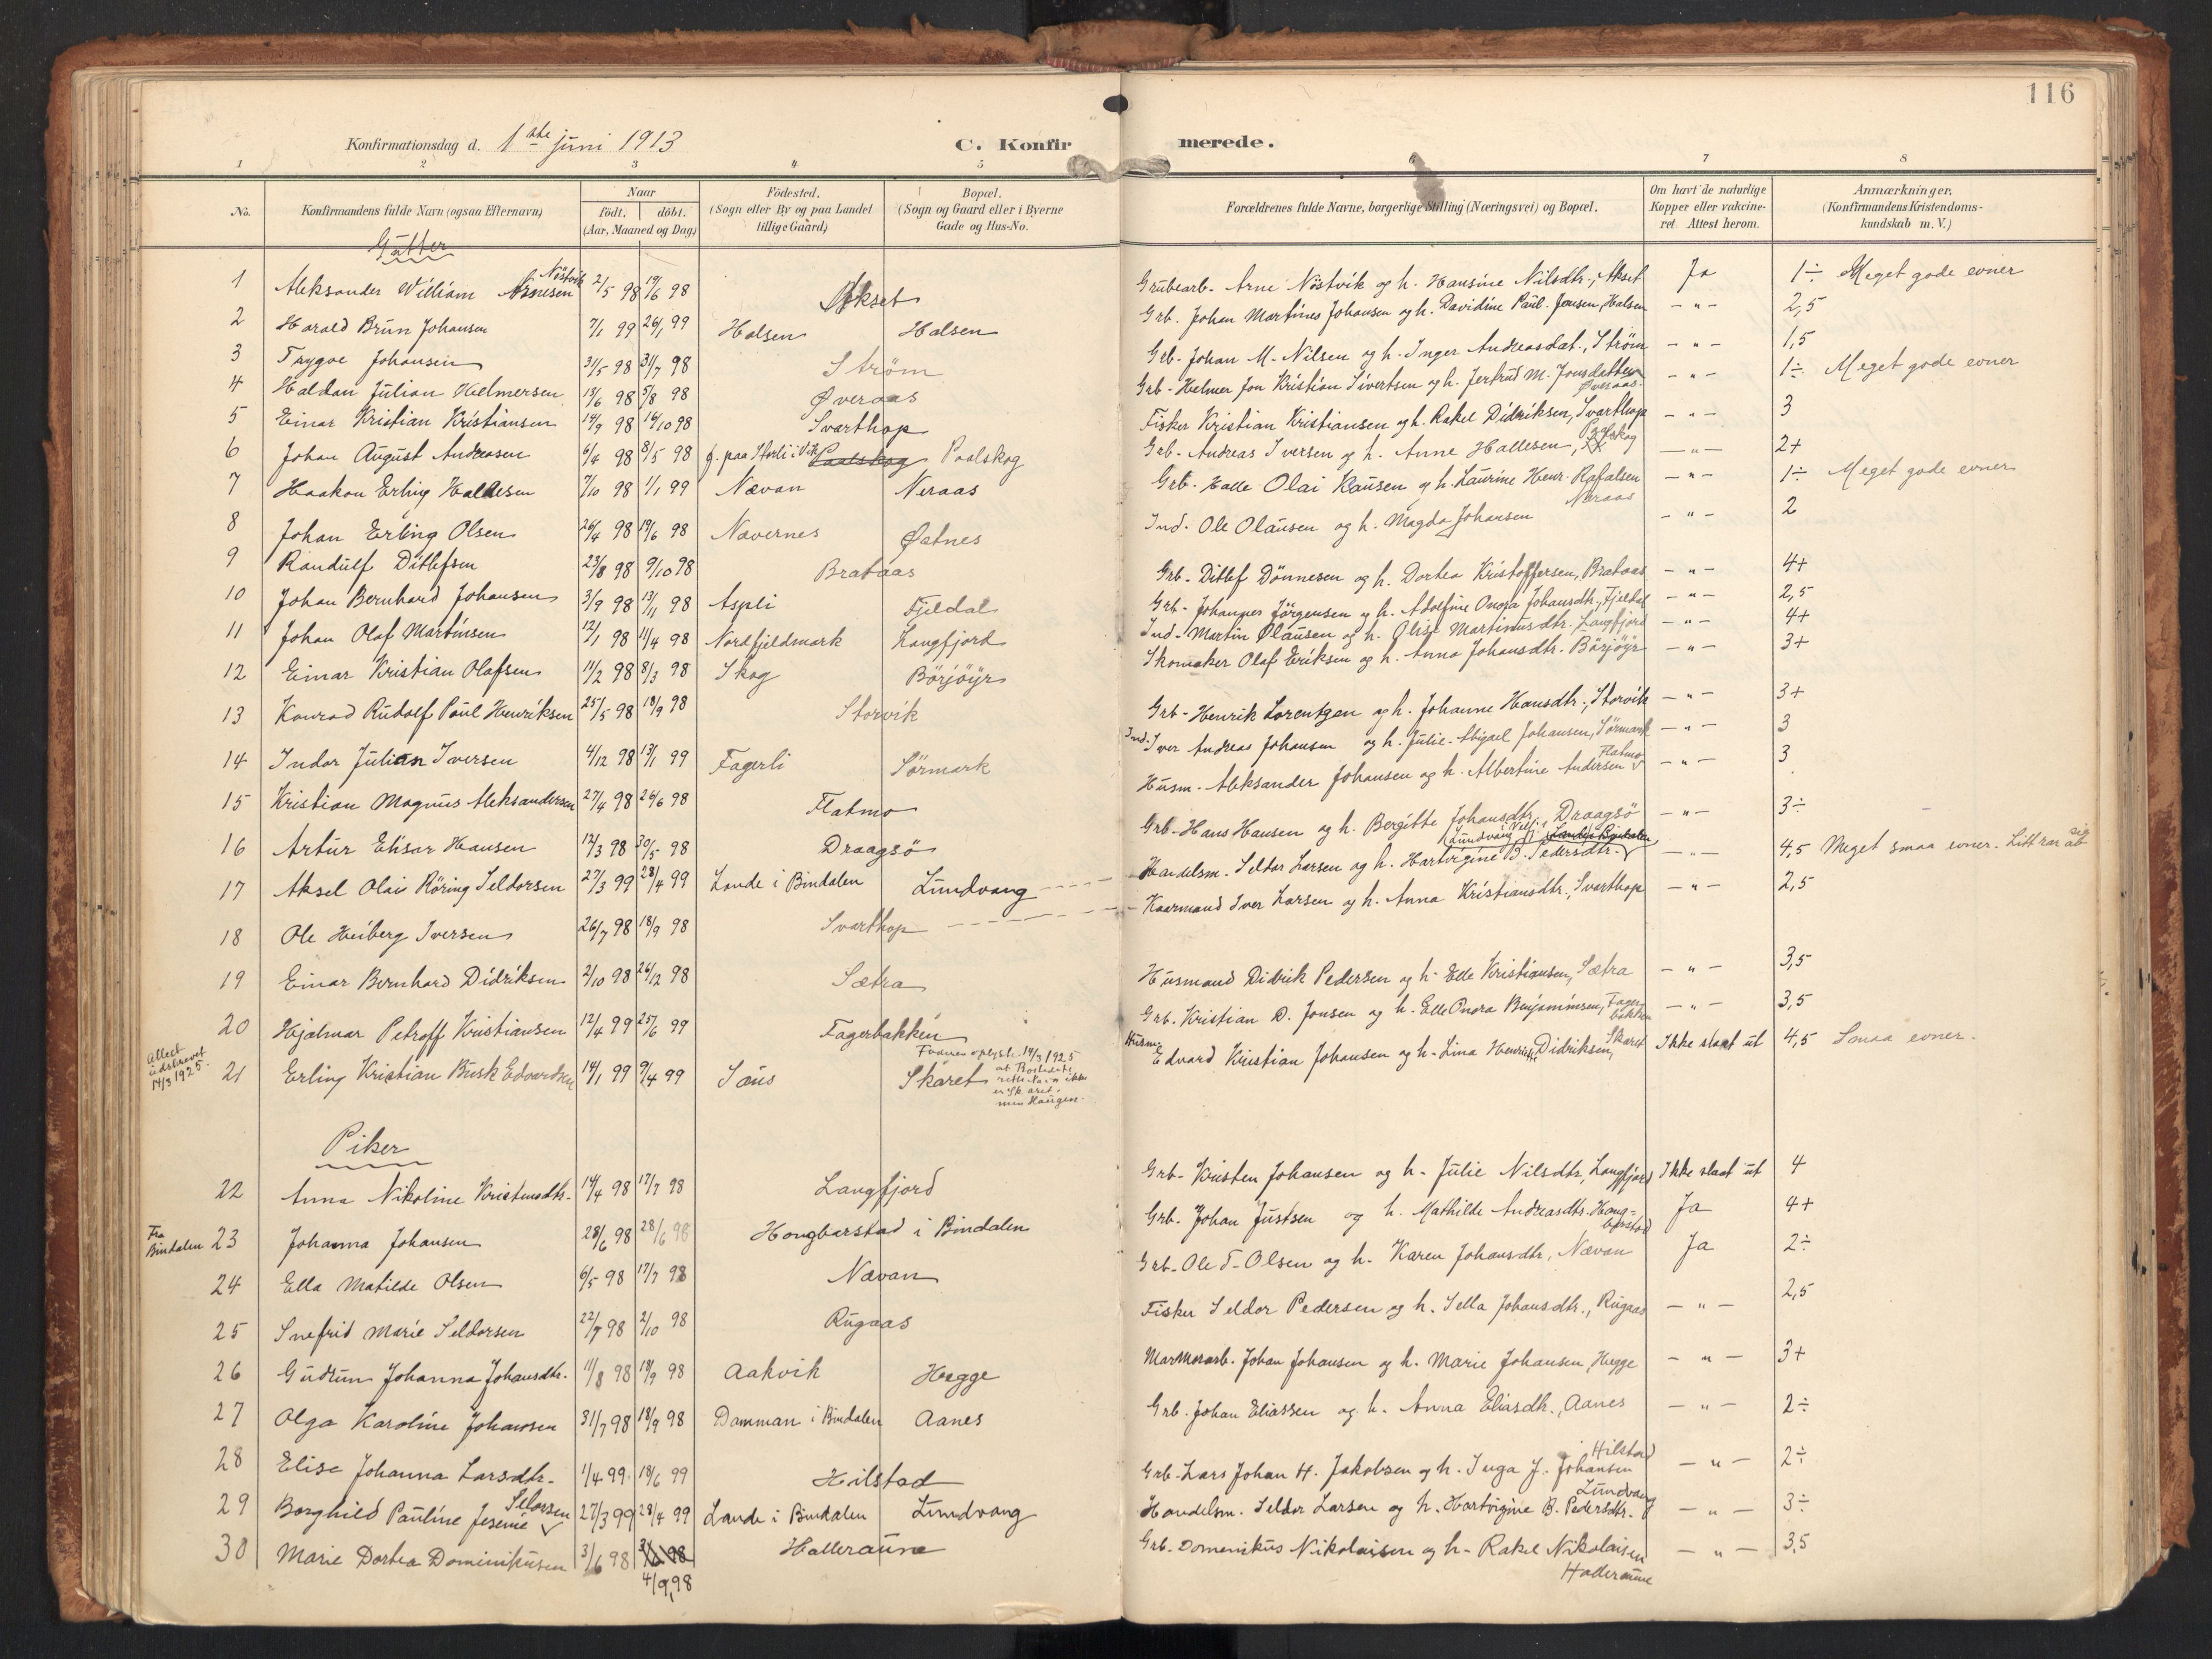 116
Konfirmationsdag d. 1ste juni 1913 C. Konfirmerede.
1 2 3 4 5 6 7 8
No. Konfirmandens fulde Navn (ogsaa Efternavn) Naar födt. döbt. (Aar, Maaned og Dag) Födested. (Sogn eller By og paa Landet tillige Gaard) Bopæl. (Sogn og Gaard eller i Byerne Gade og Hus-No. Forældrenes fulde Navne, borgerlige Stilling (Næringsvei) og Bopæl. Om havt de naturlige Kopper eller vakcineret. Attest herom. Anmærkninger, (Konfirmandens Kristendomskundskab m. V.)
Gutter
1 Aleksander William Arnesen Nöstvik 2/5 98 19/6 98 Akset Grubearb. Arne Nöstvik og h. Hansine Nilsdtr., Akset Ja 1÷ Meget gode evner
2 Harald Brun Johansen 7/1 99 26/1 99 Halsen Halsen Grb. Johan Martines Johansen og h. Davidine Paul. Jensen, Halsen - " - 2,5
3 Trygve Johansen 31/5 98 31/7 98 Ström Grb. Johan M. Nilsen og h. Inger Andreasdat., Ström - " - 1,5
4 Haldan Julian Helmersen 13/6 98 5/8 98 Øveraas Grb - Helmer Jon Kristian Sivertsen og h. Jertrud M. Jonsdatter Øveraas. - " - 1÷ Meget gode evner
5 Einar Kristian Kristiansen 14/9 98 16/10 98 Svarthop Fisker Kristian Kristiansen og h. Rakel Didriksen, Svarthop - " - 3
6 Johan August Andreasen 6/4 98 8/5 98 f. paa Storli i Vik Paalskog Paalskog Grb. Andreas Iversen og h. Anne Hallesen, Paalskog - " - 2+
7 Haakon Erling Hallesen 7/10 98 1/1 99 Nævan Neraas Grb. Halle Olai Hansen og h. Laurine Henr. Rafalsen Neraas - " - 1÷ Meget gode evner
8 Johan Erling Olsen 26/4 98 19/6 98 Navernes Østnes Ind. Ole Olausen og h. Magda Johansen - " - 2
9 Randulf Ditlefsen 23/8 98 9/10 98 Brataas Grb - Ditlef Dönnesen og h. Dortea Kristoffersen, Brataas - " - 4+
10 Johan Bernhard Johansen 3/9 98 13/11 98 Aspli Fjeldal Grb - Johannes Jörgensen og h. Adolfine Onora Johansdtr., Fjeldal - " - 2,5
11 Johan Olaf Martinsen 12/1 98 11/4 98 Nordfjeldmark Langfjord Ind - Martin Olausen og h. Olise Martinusdtr. Langfjord - " - 4+
12 Einar Kristian Olafsen 11/2 98 8/3 98 Skog Börjöyr Skomaker Olaf Eriksen og h. Anna Johansdtr. Börjöyr - " - 3+
13 Konrad Rudolf Paul Henriksen 25/5 98 18/9 98 Storvik Grb - Henrik Lorentzen og h. Johanne Hansdtr., Storvik - " - 3+
14 Indor Julian Iversen 4/12 98 13/1 99 Fagerli Sörmark Ind. Iver Andreas Johansen og h. Julie Abigael Johansen, Sörmark - " - 3
15 Kristian Magnus Aleksandersen 27/4 98 26/6 98 Flatmo Husm - Aleksander Johansen og h. Albertine Andersen Flatmo - " - 3
16 Artur Elisar Hansen 12/3 98 30/5 98 Draagsö Grb - Hans Hansen og h. Bergitte Johansdtr., Draagsö - " - 3÷
17 Aksel Olai Röring Seldorsen 27/3 99 28/4 99 Lande i Bindalen Lundvang Handelsm. Seldor Larsen og h. Hartvigine B. Pedersdtr. - " - 4,5 Meget smaa evner.
18 Ole Heiberg Iversen 26/7 98 18/9 98 Svarthop Kaarmand Iver Larsen og h. Anna Kristiansdtr., Svarthop - " - 2,5
19 Einar Bernhard Didriksen 2/10 98 26/12 98 Sætra Husmand Didrik Pedersen og h. Elle Kristiansen, Sætra - " - 3,5
20 Hjalmar Petroff Kristiansen 12/4 99 25/6 99 Fagerbakken Grb. Kristian D. Jonsen og h. Elle Onora Benjaminsen, Fagerbakken - " - 3,5
Attest udskrevet 14/3 1925. 21 Erling Kristian Busk Edvardsen 14/1 99 9/4 99 Saus Skaret Husm. Edvard Kristian Johansen og h. Lina Henriette Didriksen, Skaret Ikke slaat ut 4,5 Smaa evner.
oplyst 14/3 1925 at Bostedets rette Navn ikke er Skaret, men Haugen.
Piker
22 Anna Nikoline Kristensdtr. 14/4 98 17/7 98 Langfjord Grb - Kristen Johansen og h. Julie Nilsdtr, Langfjord Ikke slaat ut 4
Fra Bindalen 23 Johanna Johansen 28/6 98 28/6 98 Hongbarstad i Bindalen Grb. Johan Justsen og h. Mathilde Andreasdtr. Hongbarstad Ja 4+
24 Ella Matilde Olsen 6/5 98 17/7 98 Nævan Grb - Ole T. Olsen og h. Karen Johansdtr, Nævan Ja 2÷
25 Snefrid Marie Seldorsen 22/7 98 2/10 98 Rugaas Fisker Seldor Pedersen og h. Sella Johansdtr., Rugaas - " - 2,5
26 Gudrun Johanna Johansdtr. 11/8 98 18/9 98 Aakvik Hegge Marmorarb. Johan Johansen og h. Marie Johansen, Hegge - " - 3+
27 Olga Karoline Johansen 31/7 98 18/9 98 Damman i Bindalen Aanes Grb. Johan Eliassen og h. Anna Eliasdtr., Aanes - " - 2÷
28 Elise Johanna Larsdtr. 1/4 99 18/6 99 Hilstad Grb - Lars Johan H. Jakobsen og h. Inga J. Johansen Hilstad - " - 2÷
29 Borghild Pauline Jesenie Seldorsen 27/3 99 28/4 99 Lande i Bindalen Lundvang Handelsm. Seldor Larsen og h. Hartvigine B. Pedersdtr. Lundvang - " - 3÷
30 Marie Dortea Dominikusen 3/6 98 3/6 98 4/9 98 Halleraune Grb. Domenikus Nikolaisen og h. Rakel Nikolaisen Halleraune - " - 3,5